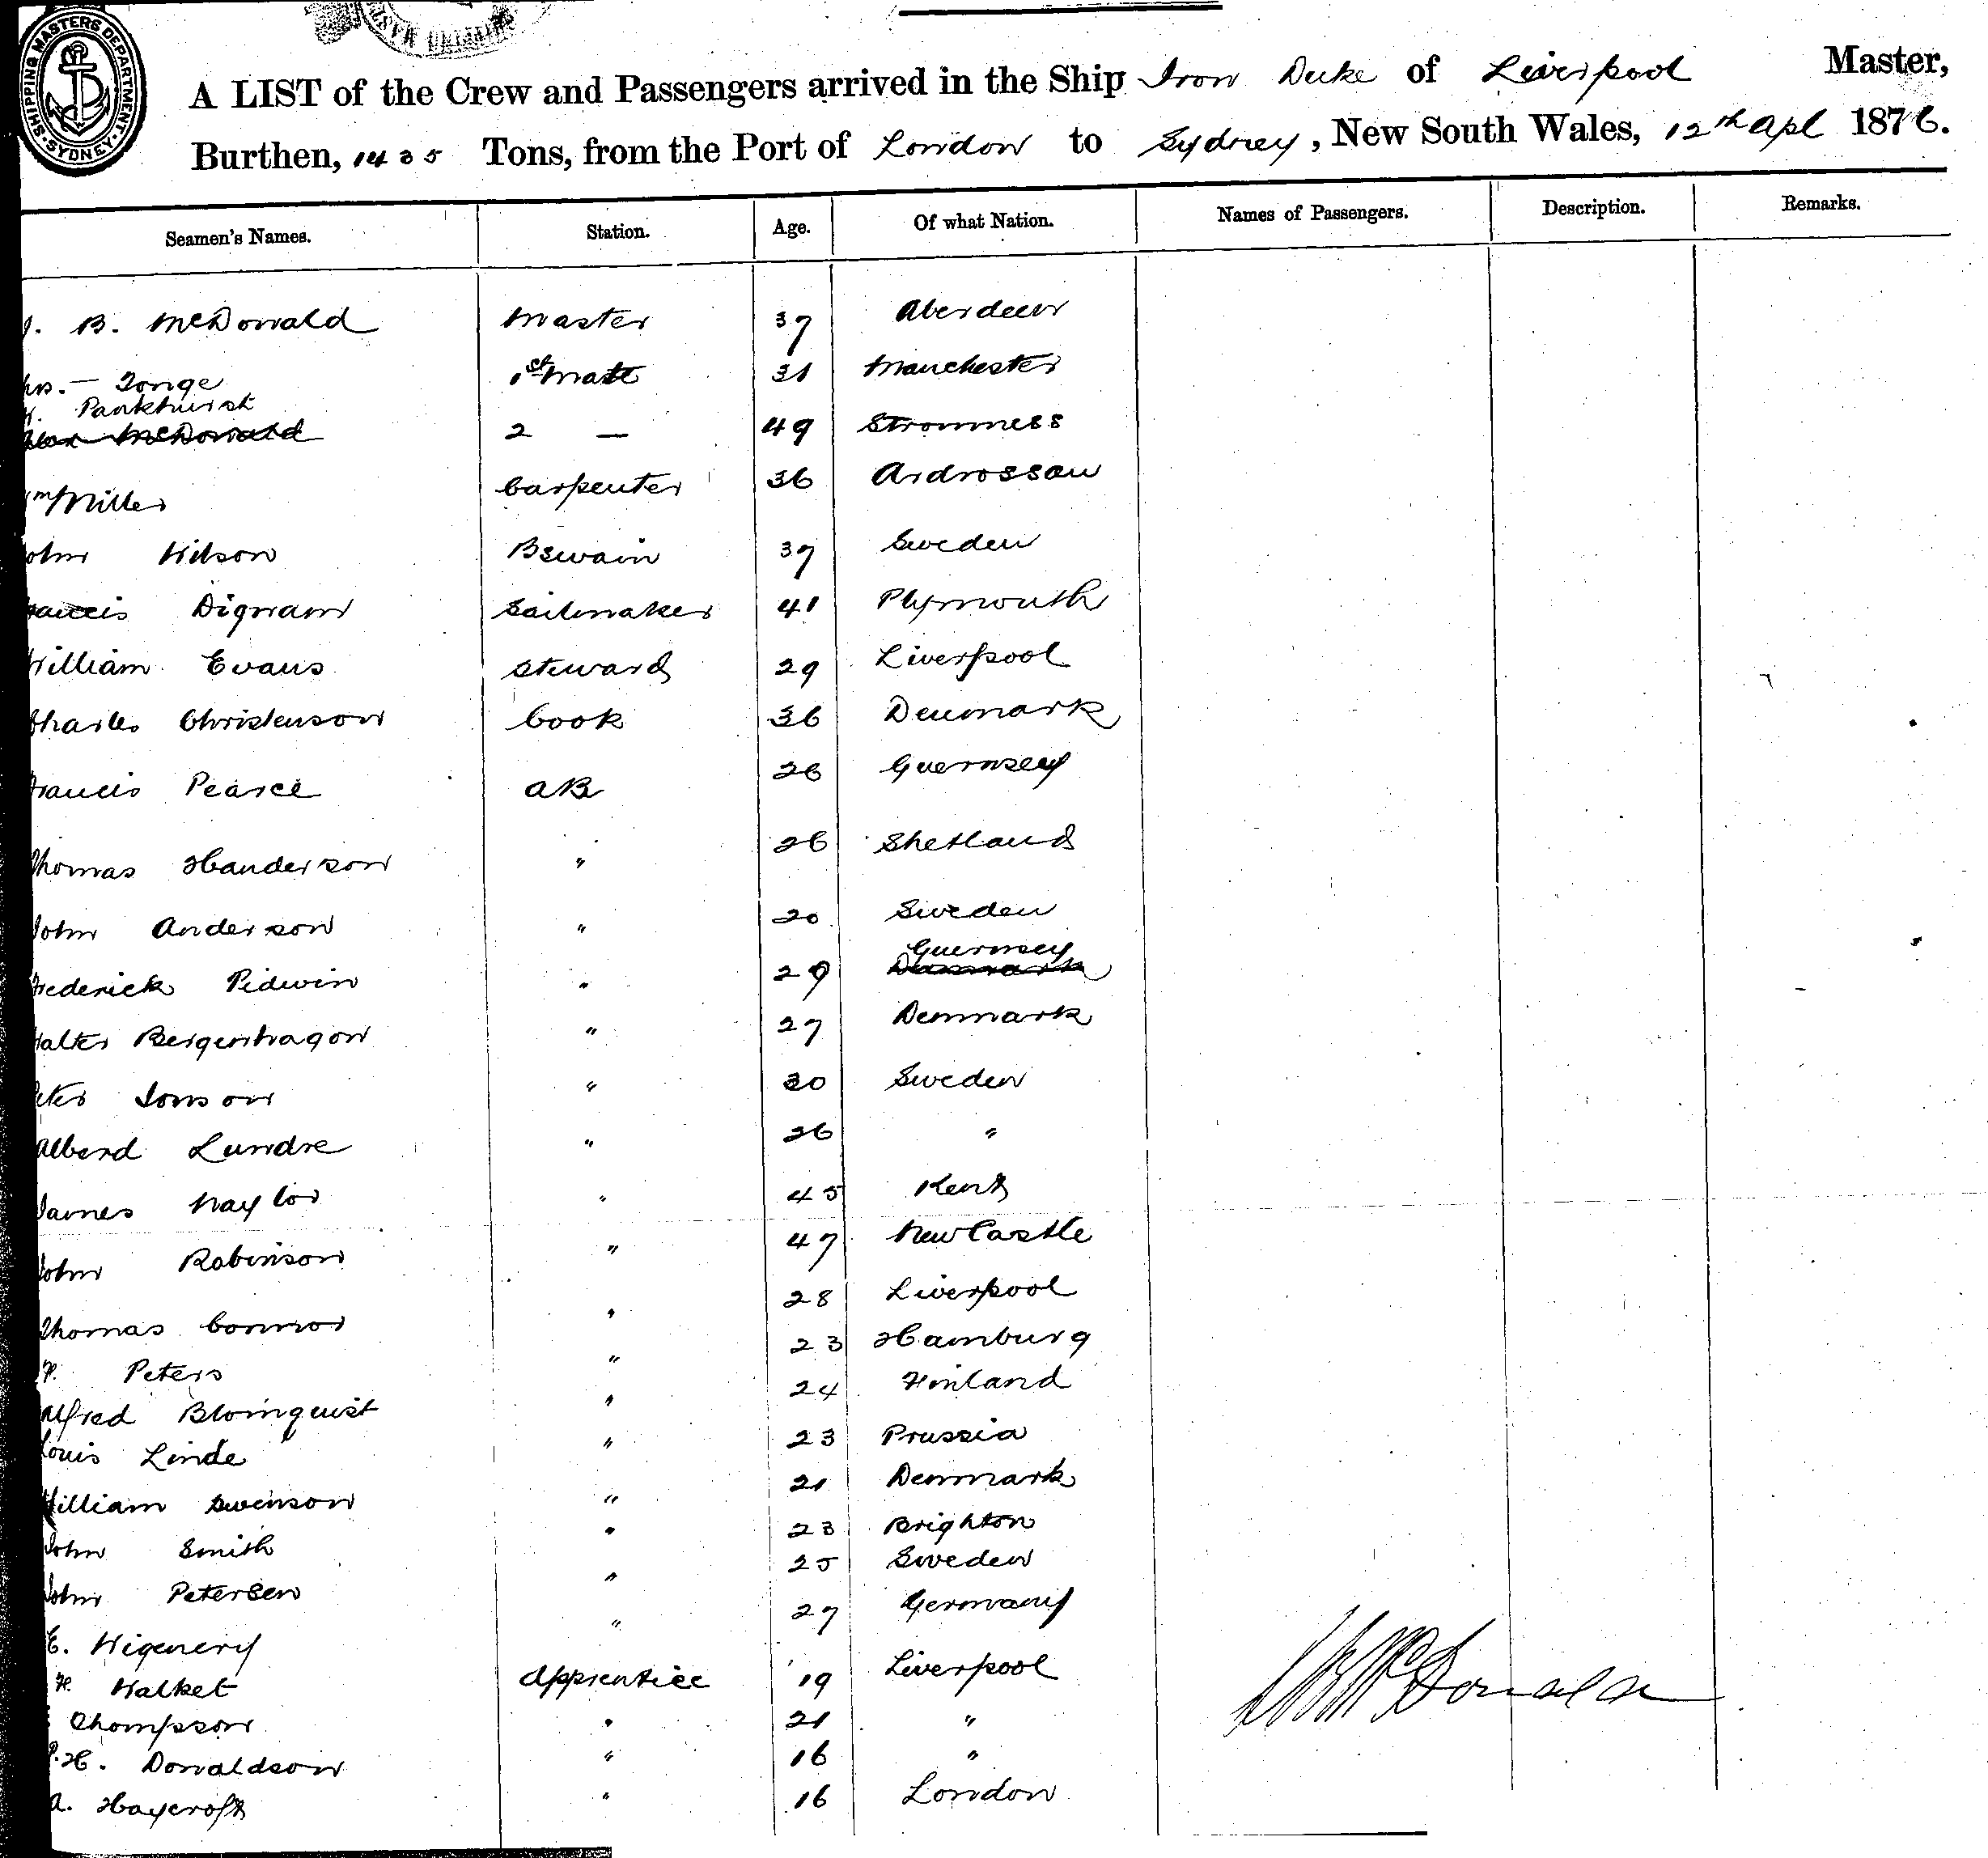 SHIPPING MASTERS DEPARTMENT SYDNEY
A LIST of the Crew and Passengers arrived in the Ship Iron Duke of Liverpool Master,
Burthen, 1435 Tons, from the Port of London to Sydney, New South Wales, 12th Apl 1876.
Seamen's Names. Station. Age. Of what Nation. Names of Passengers. Description. Remarks.
B. McDonald Master 37 Aberdeen
Tonge 1st Mate 31 Manchester
Pankhurst
McDonald 2 — 49 Stromness
Wm Miller Carpenter 36 Ardrossan
John Wilson Bswain 37 Sweden
Francis Dignam Sailmaker 41 Plymouth
William Evans Steward 29 Liverpool
Charles Christenson Cook 36 Denmark
Francis Pearce AB 26 Guernsey
Thomas Handerson " 26 Shetland
John Anderson " 20 Sweden
Guernsey
Frederick Pidwin " 29 Denmark
Walter Bergenhagon " 27 Denmark
Peter Jonson " 30 Sweden
Alberd Lundre " 26 "
James Naylor " 45 Kent
John Robinson " 47 NewCastle
Thomas Connor " 28 Liverpool
F. Peters " 23 Hamburg
Alfred Blomquist " 24 Finland
Louis Linde " 23 Prussia
William Swenson " 21 Denmark
John Smith " 23 Brighton
John Petersen " 25 Sweden
E. Wigenery " 27 Germany
F. Walket Apprentice 19 Liverpool
Thompson " 21 "
P. H. Donaldson " 16 "
A. Haycroft " 16 London
McDonald